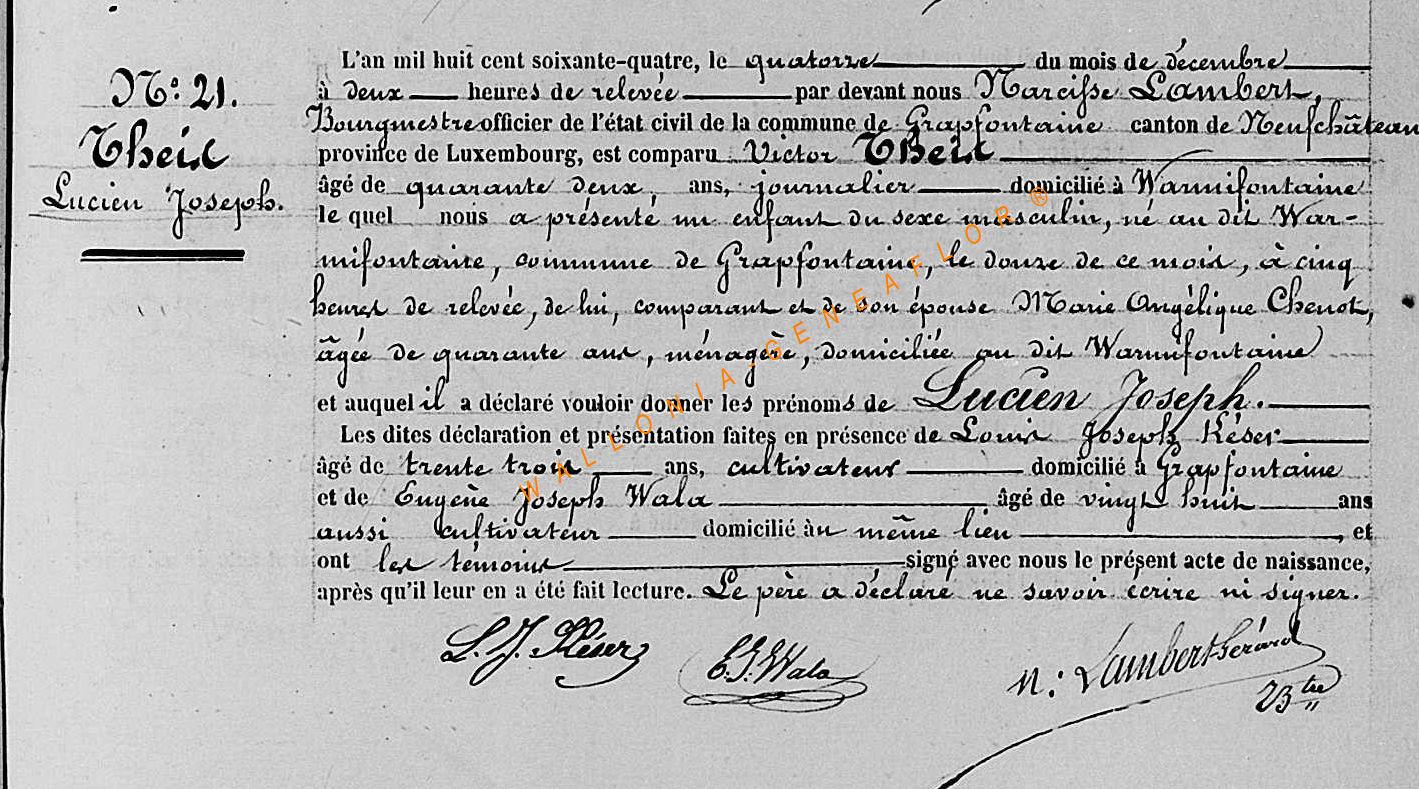 N° 21.
Theis
Lucien Joseph.
L'an mil huit cent soixante-quatre, le quatorze du mois de décembre
à deux heures de relevée par devant nous Narcisse Lambert,
Bourgmestre officier de l'état civil de la commune de Grapfontaine canton de Neufchâteau
province de Luxembourg, est comparu Victor Theis
âgé de quarante deux ans, journalier domicilié à Warmifontaine
le quel nous a présenté un enfant du sexe masculin, né au dit War-
mifontaine, commune de Grapfontaine, le douze de ce mois, à cinq
heures de relevée, de lui, comparant et de son épouse Marie Angélique Chenot,
âgée de quarante ans, ménagère, domiciliée au dit Warmifontaine
et auquel il a déclaré vouloir donner les prénoms de Lucien Joseph.
Les dites déclaration et présentation faites en présence de Louis Joseph Késer
âgé de trente trois ans, cultivateur domicilié à Grapfontaine
et de Eugène Joseph Wala âgé de vingt huit ans
aussi cultivateur domicilié au même lieu, et
ont les témoins signé avec nous le présent acte de naissance,
après qu'il leur en a été fait lecture. Le père a déclaré ne savoir écrire ni signer.
L. J. Késer E. J. Wala N: Lambert Gérard
23tre
WALLONIA-GENEAFLOR®